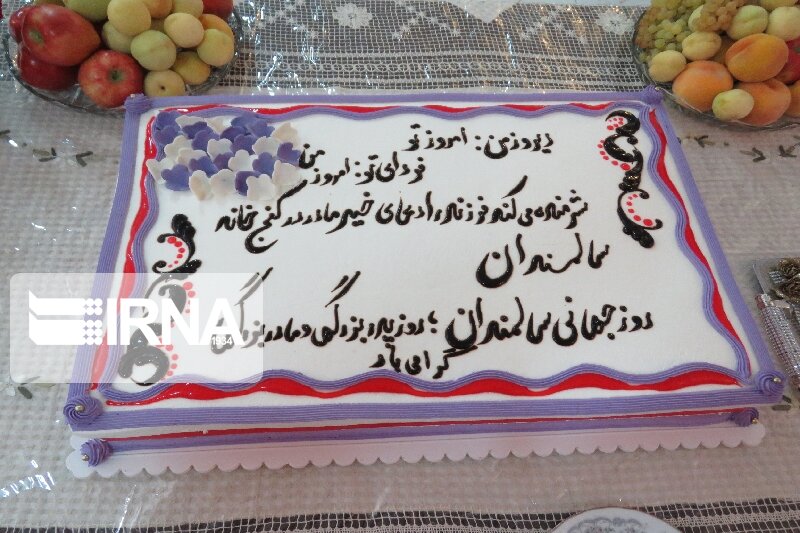 دیروز من: امروز تو
فردای تو: امروز من
شرمنده می کند فرزند را دعای خیر مادر در کنج خانه
سالمندان
روز جهانی سالمندان ؛ روز پدر بزرگ و مادر بزرگ
گرامی باد
IRNA
1934